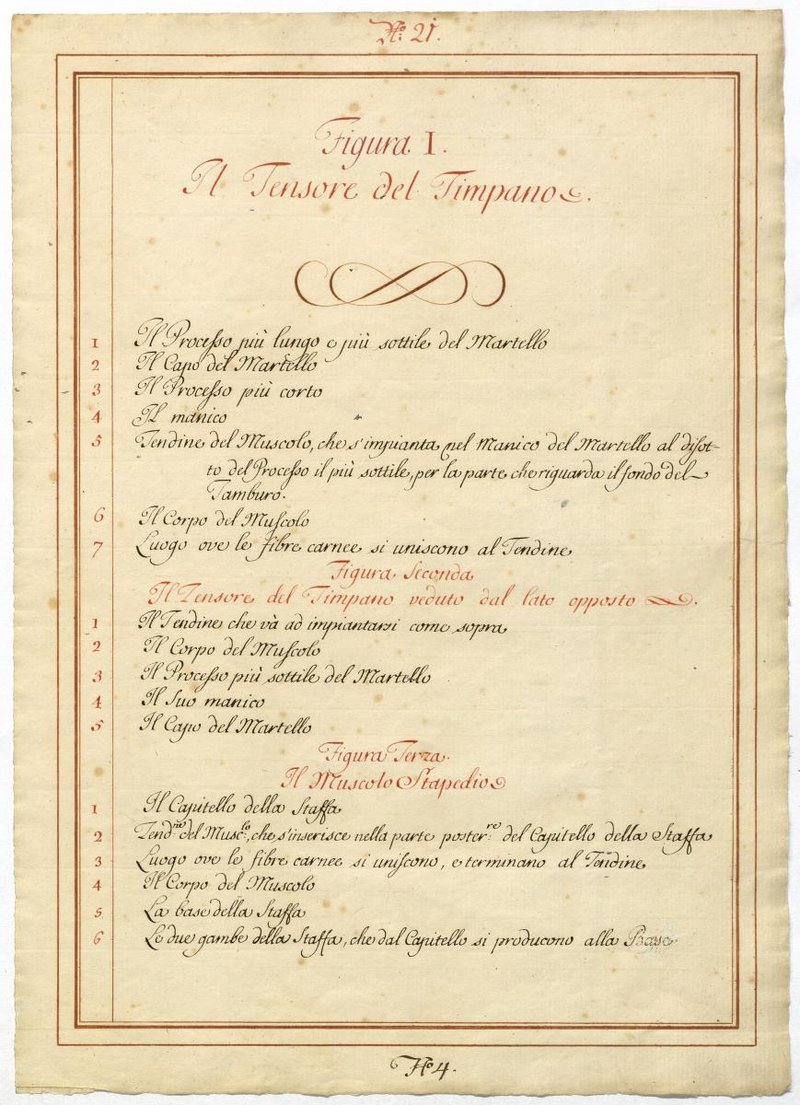 N.º 21.
Figura I.
Il Tensore del Timpano.
1 Il Processo più lungo e più sottile del Martello
2 Il Capo del Martello
3 Il Processo più corto
4 Il manico
5 Tendine del Muscolo, che s'impianta nel Manico del Martello al disot-
to del Processo il più sottile, per la parte che riguarda il fondo del
Tamburo.
6 Il Corpo del Muscolo
7 Luogo ove le fibre carnee si uniscono al Tendine
Figura Seconda
Il Tensore del Timpano veduto dal lato opposto.
1 Il Tendine che và ad impiantarsi come sopra
2 Il Corpo del Muscolo
3 Il Processo più sottile del Martello
4 Il Suo manico
5 Il Capo del Martello
Figura Terza.
Il Muscolo Stapedio
1 Il Capitello della Staffa
2 Tend.ne del Musc.lo, che s'inserisce nella parte poster.re del Capitello della Staffa
3 Luogo ove le fibre carnee si uniscono, e terminano al Tendine
4 Il Corpo del Muscolo
5 La base della Staffa
6 Le due gambe della Staffa, che dal Capitello si producono alla Base
Nº 4.